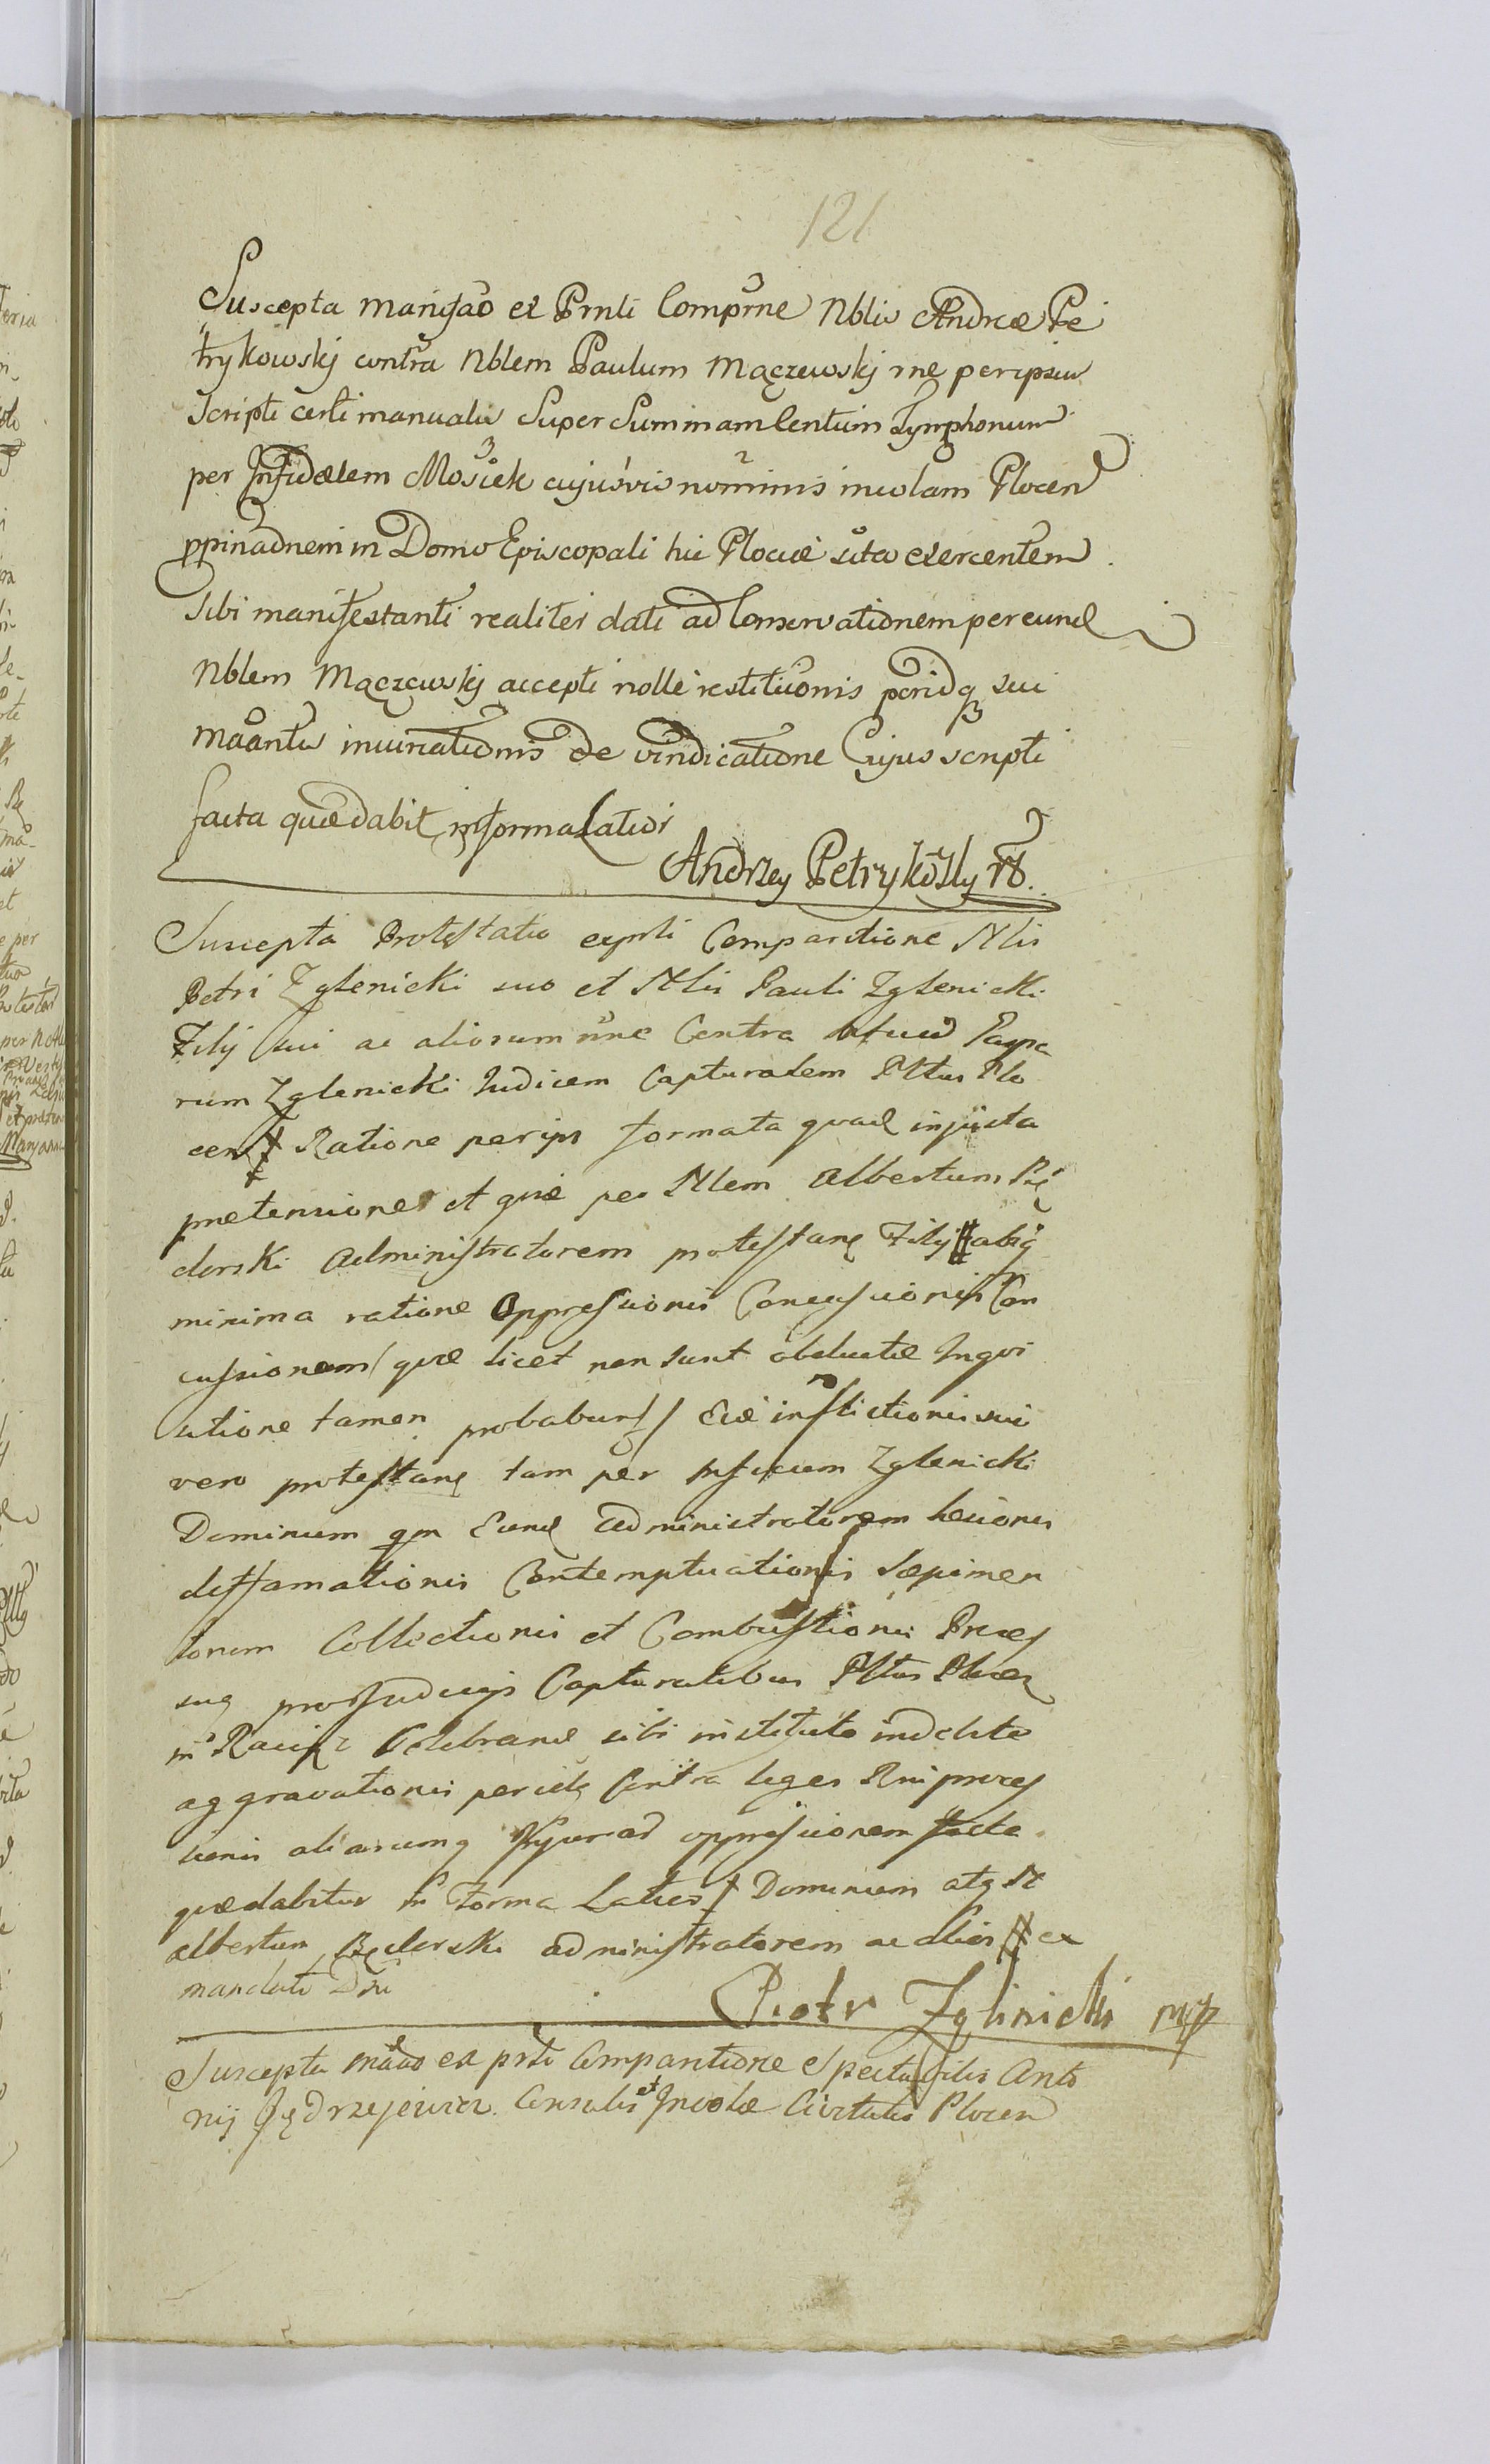 121
Suscepta manifão ex Prnti Comprne Nblis Andreæ Pe
trykowskj contra Nblem Paulum Mączewskj rne peripsum
Scripti certi manualis Super Summam Centum Tymphonum
per Infidelem Mosiek cujusvis nominis incolam Plocen
ppinationem in Domo Episcopali hic Plociæ sita exercentem
sibi manifestanti realiter dati ad Conservationem per eund
Nblem Mączewskj accepti nolle restituõnis peridq sui
mãantis iniuriationis de vindicatione Cujus scripti
facta quædabit in forma Latiori
Andrzey Petrykowsky
Suscepta Protestatio exprti Comparitione Mlis
Petri Zglenicki suo et Mlis Pauli Zglenicki
Filij sui ac aliorum nne Contra Paspa
rum Zglenicki Judicem Capturalem Pltus Plo
cen Ratione per ips formata quad injusta
prætensione et quæ per Mlem Albertum Bę
dorski Administratorem protestang Filij absq
minima ratione Oppressionis Concussionis Con
cussionem quæ licet non sunt obductæ Inqui
sitione tamen probabunt inflictionis sui
vero protestang tam per Zglenicki
Dominum qm Eund Administratorem læsionis
diffamationis Contemptuationis Sæpimen
torum Collectionis et Combustionis
suq pro Judicijs Capturalibus Pltus Plocen
in Raciąz Celebrand sibi instituto indebite
aggravationis peridq Contra leges Rni proces
suris aliarumq ad oppressionem facta
quædabitur in Forma Latiori Dominum atq M
Albertum Będorski administratorem ac alios ex
mandato Dni
Piotr Zglinicki mp
Suscepta mãao ex prti Comparitione Spectabilis Anto
nij Jędrzejewicz Consulis et Incolæ Civitatis Plocen